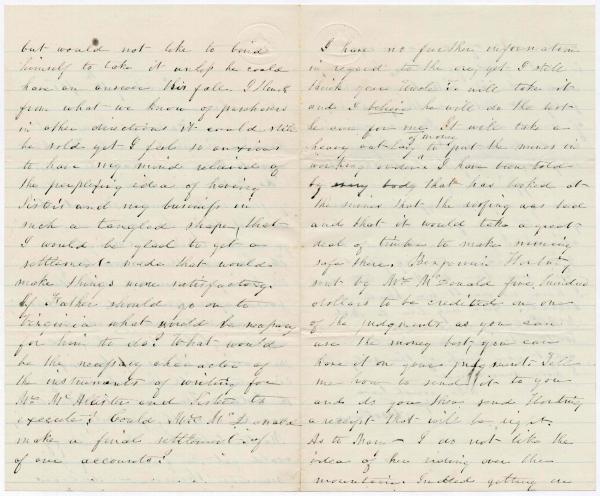 but would not like to bind
himself to take it unless he could
have an answer this fall. I think
from what we know of purchasers
in other directions it could still
be sold yet I feel so anxious
to have my mind relieved of
the perplexing idea of having
Sister's and my business in
such a tangled shape, that
I would be glad to get a
settlement made that would
make things more satisfactory.
If Father should go on to
Virginia what would be necessary
for him to do? What would
be the necessary character of
the instruments of writing for
Mr. McAlister and Sister to
execute? Could Mr. McDonald
make a final settlement
of our accounts?
I have no further information
in regard to the ore, yet I still
think your Uncle will take it
and I believe he will do the best
he can for me. It will take a
heavy out-lay of money to put the mines in
working order. I have been told
by body that has looked at
the mines that the roofing was bad
and that it would take a great
deal of timber to make mining
safe there. Benjamin
sent by Mr. McDonald five hundred
dollars to be credited on one
of the judgments as you can
use the money best, you can
have it on your judgment. Tell
me how to send it to you
and do you send
a receipt that will be right.
As to I do not like the
idea of her riding over the
mountain. getting on